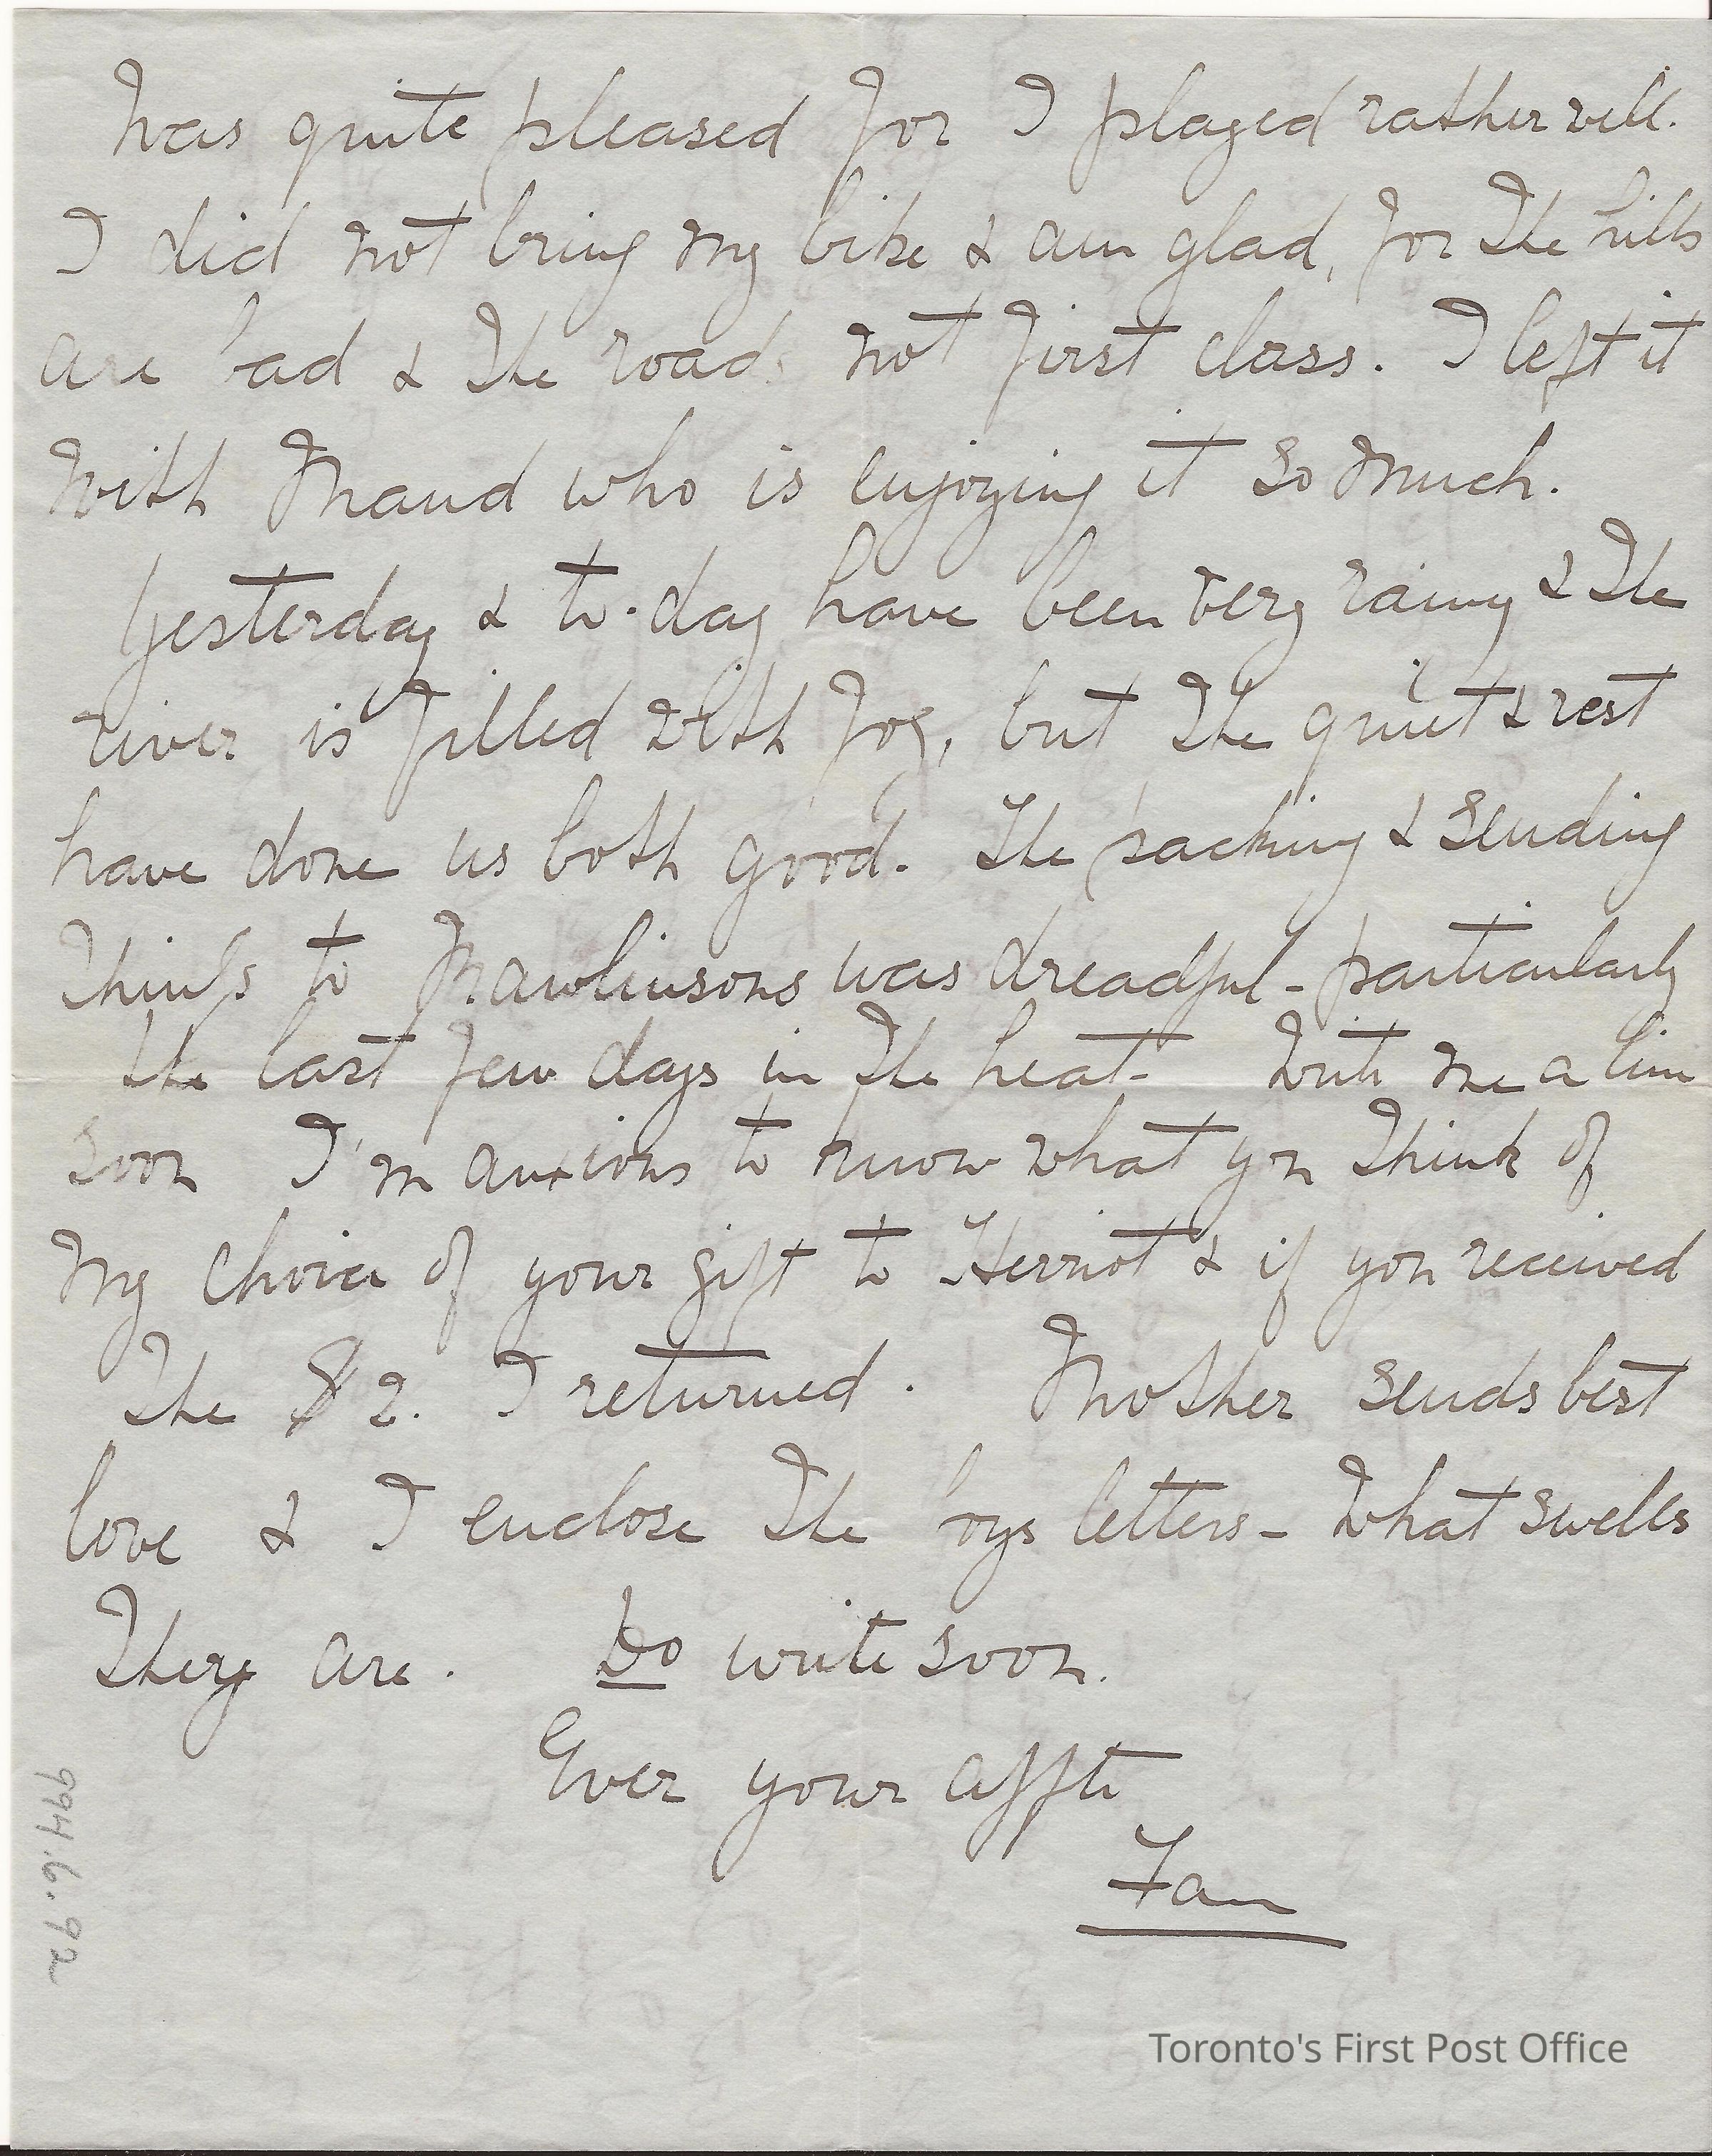 was quite pleased for I played rather well.
I did not bring my bike & am glad, for the hills
are bad & the roads not first class. I left it
with Maud who is enjoying it so much.
Yesterday & to-day have been very rainy & the
river is filled with fog, but the quiet & rest
have done us both good. The packing & sending
things to Mawlinsons was dreadful - particularly
the last few days in the heat - Write me a line
soon I'm anxious to know what you think of
my choice of your gift to Herriot & if you received
the $2. I returned. Mother sends best
love & I enclose the boys letters - What swells
they are. Do write soon.
Ever your affte
Fan
994.6.92
Toronto's First Post Office